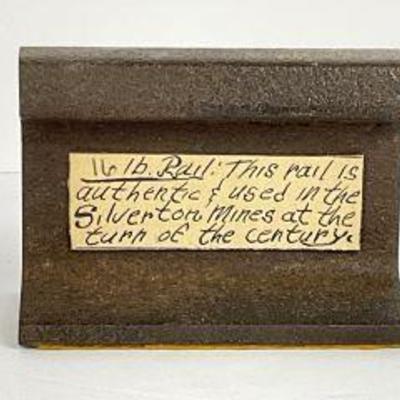 16 lb. Rail: This rail is
authentic & used in the
Silverton Mines at the
turn of the century.